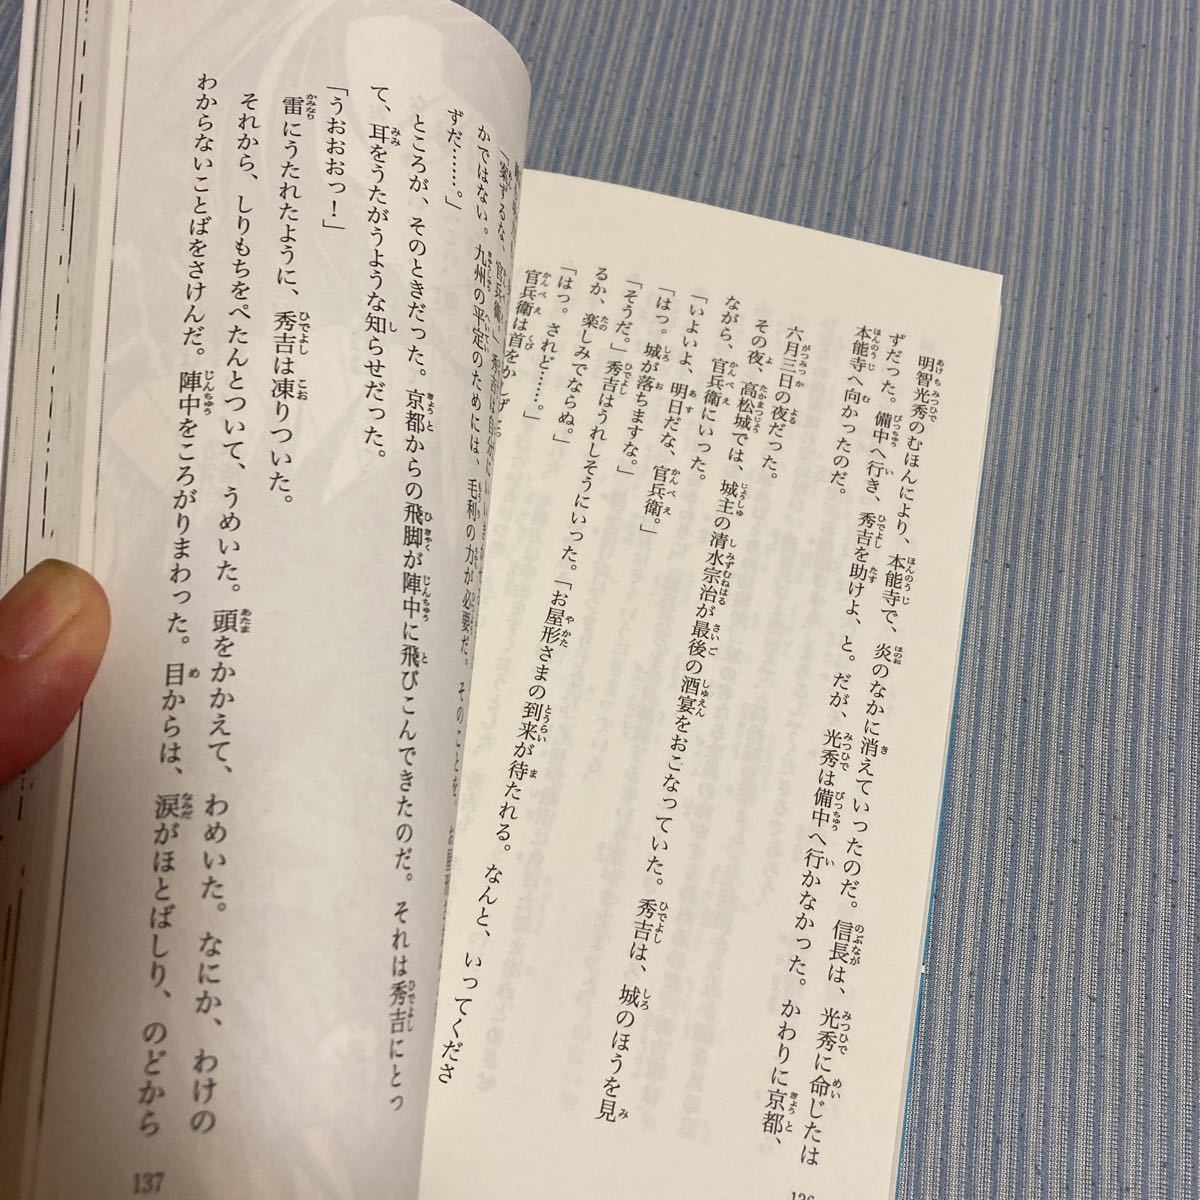 明智光秀のむほんにより、本能寺で、炎のなかに消えていったのだ。信長は、光秀に命じたは
ずだった。備中へ行き、秀吉を助けよ、と。だが、光秀は備中へ行かなかった。かわりに京都、
本能寺へ向かったのだ。
六月三日の夜だった。
その夜、高松城では、城主の清水宗治が最後の酒宴をおこなっていた。秀吉は、城のほうを見
ながら、官兵衛にいった。
「いよいよ、明日だな、官兵衛。」
「はっ。城が落ちますな。」
「そうだ。」秀吉はうれしそうにいった。「お屋形さまの到来が待たれる。なんと、いってくださ
るか、楽しみでならぬ。」
「はっ。されど……。」
官兵衛は首をかしげ
「案ずるな、官兵衛。」
かではない。九州の平定のためには、毛利の力が必要だ。そのことを、
ずだ……。」
ところが、そのときだった。京都からの飛脚が陣中に飛びこんできたのだ。それは秀吉にとっ
て、耳をうたがうような知らせだった。
「うおおおっ！」
雷にうたれたように、秀吉は凍りついた。
それから、しりもちをぺたんとついて、うめいた。頭をかかえて、わめいた。なにか、わけの
わからないことばをさけんだ。陣中をころがりまわった。目からは、涙がほとばしり、のどから
137